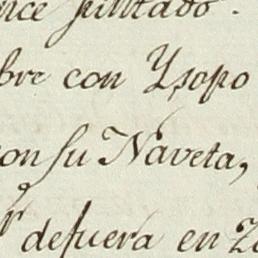 nce pintado.
bre con Ysopo
con su Naveta,
defuera en